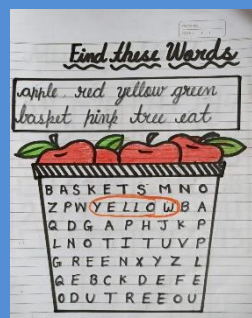 Find these Words
apple red yellow green
basket pink tree eat
B A S K E T S M N O
Z P W Y E L L O W B A
Q D G A P H J K P
L N O T I T U V P
G R E E N X Y Z L
Q E B C K D E F E
O D U T R E E O U